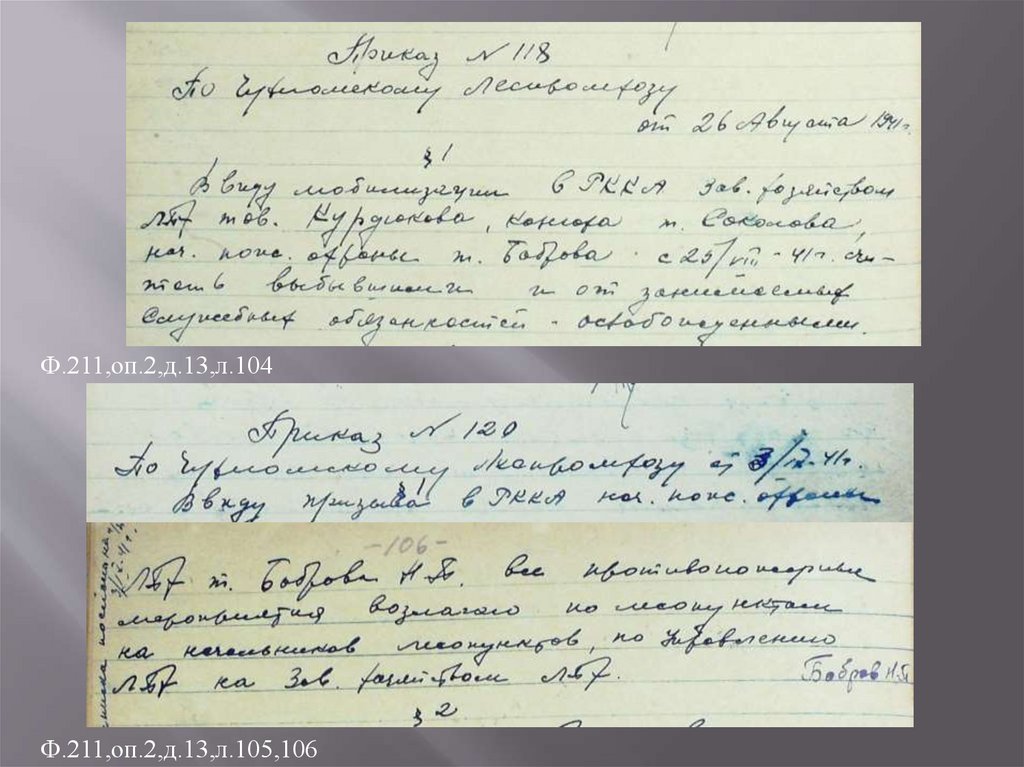 Приказ N 118
По Чухломскому Леспромхозу
от 26 Августа 1941 г.
§ 1
Ввиду мобилизации в РККА Зав. хозяйством
ЛПХ тов. Курдюкова, конюха т. Соколова,
нач. пож. охраны т. Боброва с 25/VIII-41 г. счи-
тать выбывшими и от занимаемых
служебных обязанностей - освобожденными.
Ф.211,оп.2,д.13,л.104
Приказ N 120
По Чухломскому Леспромхозу от 3/IX-41 г.
§ 1
Ввиду призыва в РККА нач. пож. охраны
-106-
ЛПХ т. Боброва Н.П. все противопожарные
мероприятия возлагаю по лесопунктам
на начальников лесопунктов, по Управлению
ЛПХ на Зав. хозяйством ЛПХ.
Бобров Н.П.
§ 2
Ф.211,оп.2,д.13,л.105,106